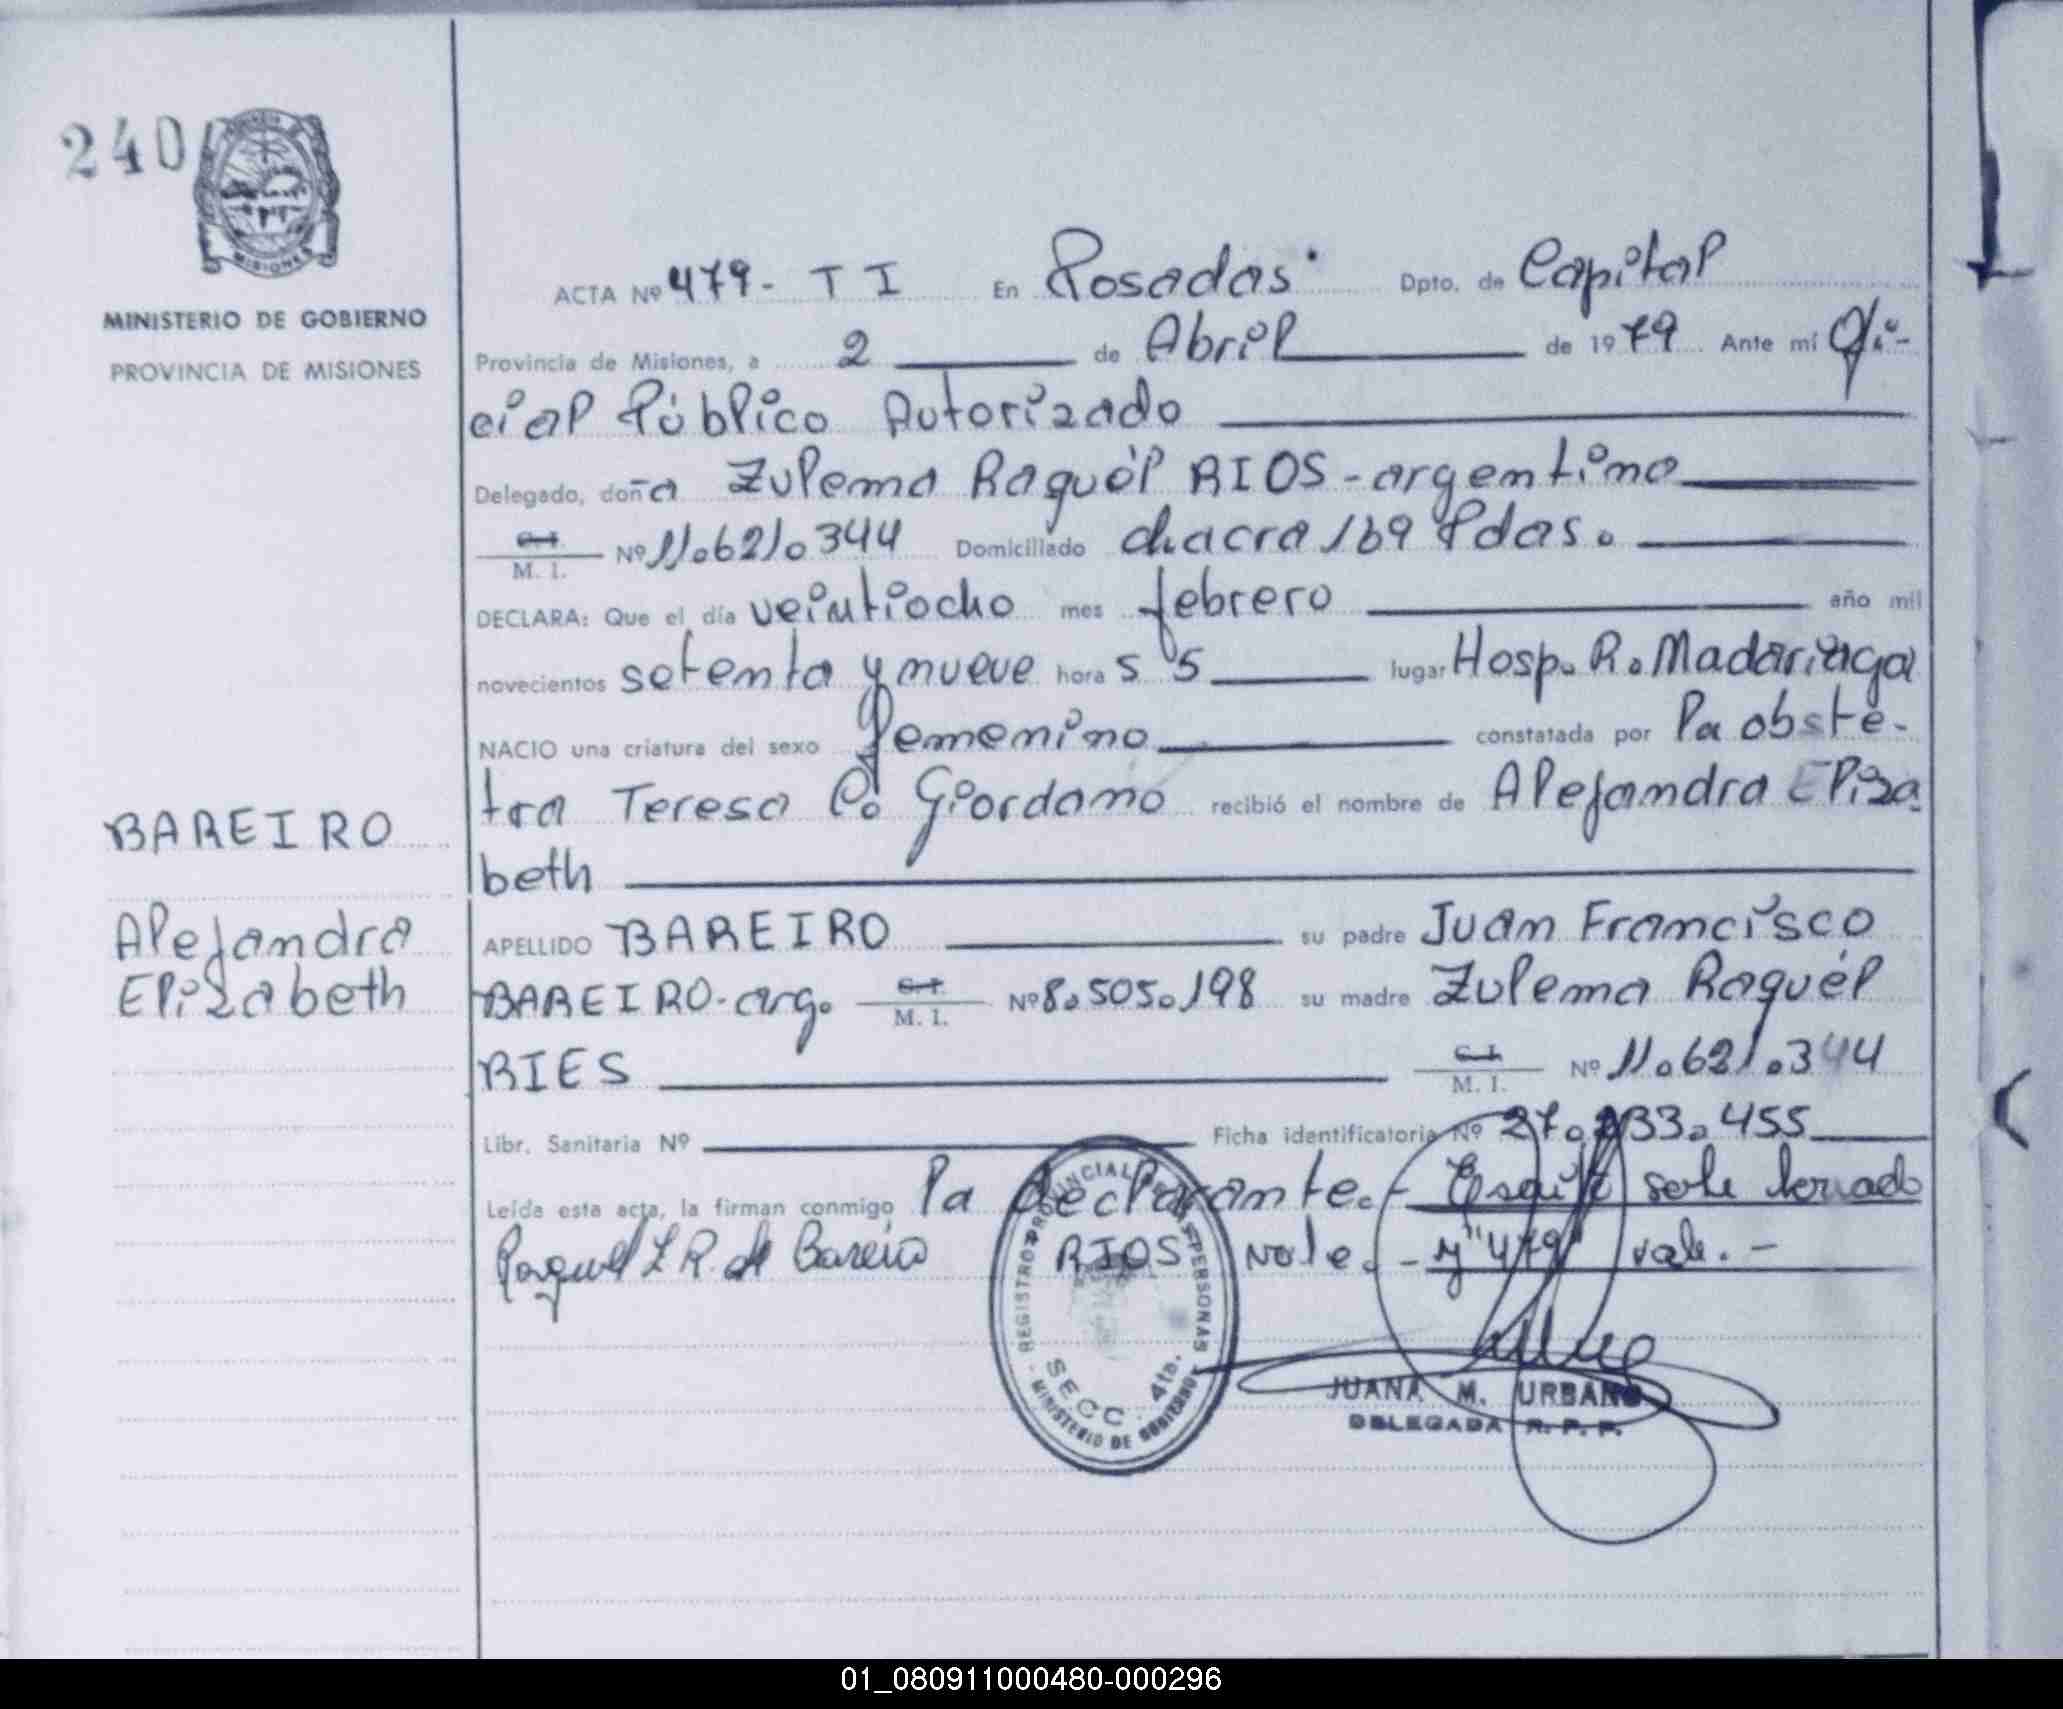 240
MISIONES
MINISTERIO DE GOBIERNO
PROVINCIA DE MISIONES
ACTA Nº 479- T I En Posadas Dpto. de Capital
Provincia de Misiones, a 2 de Abril de 1979 Ante mí Ofi-
cial Público Autorizado
Delegado, doña Zulema Raquél RIOS - argentina
C.I. M. I. Nº 11.621.344 Domiciliado chacra 169 Pdas.
DECLARA: Que el día veintiocho mes febrero año mil
novecientos setenta y nueve hora s 5 lugar Hosp. R. Madariaga
NACIO una criatura del sexo femenino constatada por la obste-
tra Teresa C. Giordano recibió el nombre de Alejandra Eliza
beth
BAREIRO
Alejandra
Elizabeth
APELLIDO BAREIRO su padre Juan Francisco
BAREIRO-arg. C.I. M. I. Nº 8.505.198 su madre Zulema Raquél
RIES C.I. M. I. Nº 11.621.344
Libr. Sanitaria Nº Ficha identificatoria Nº 27.233.455
Leída esta acta, la firman conmigo la declarante.- Escrito sobre borrado
Raquel Z R. de Bareiro RIOS Vale. - y "479" vale. -
REGISTRO PROVINCIAL DE LAS PERSONAS
SECC. 4ta.
MINISTERIO DE GOBIERNO
JUANA M. URBANO
DELEGADA R. P. P.
01_080911000480-000296